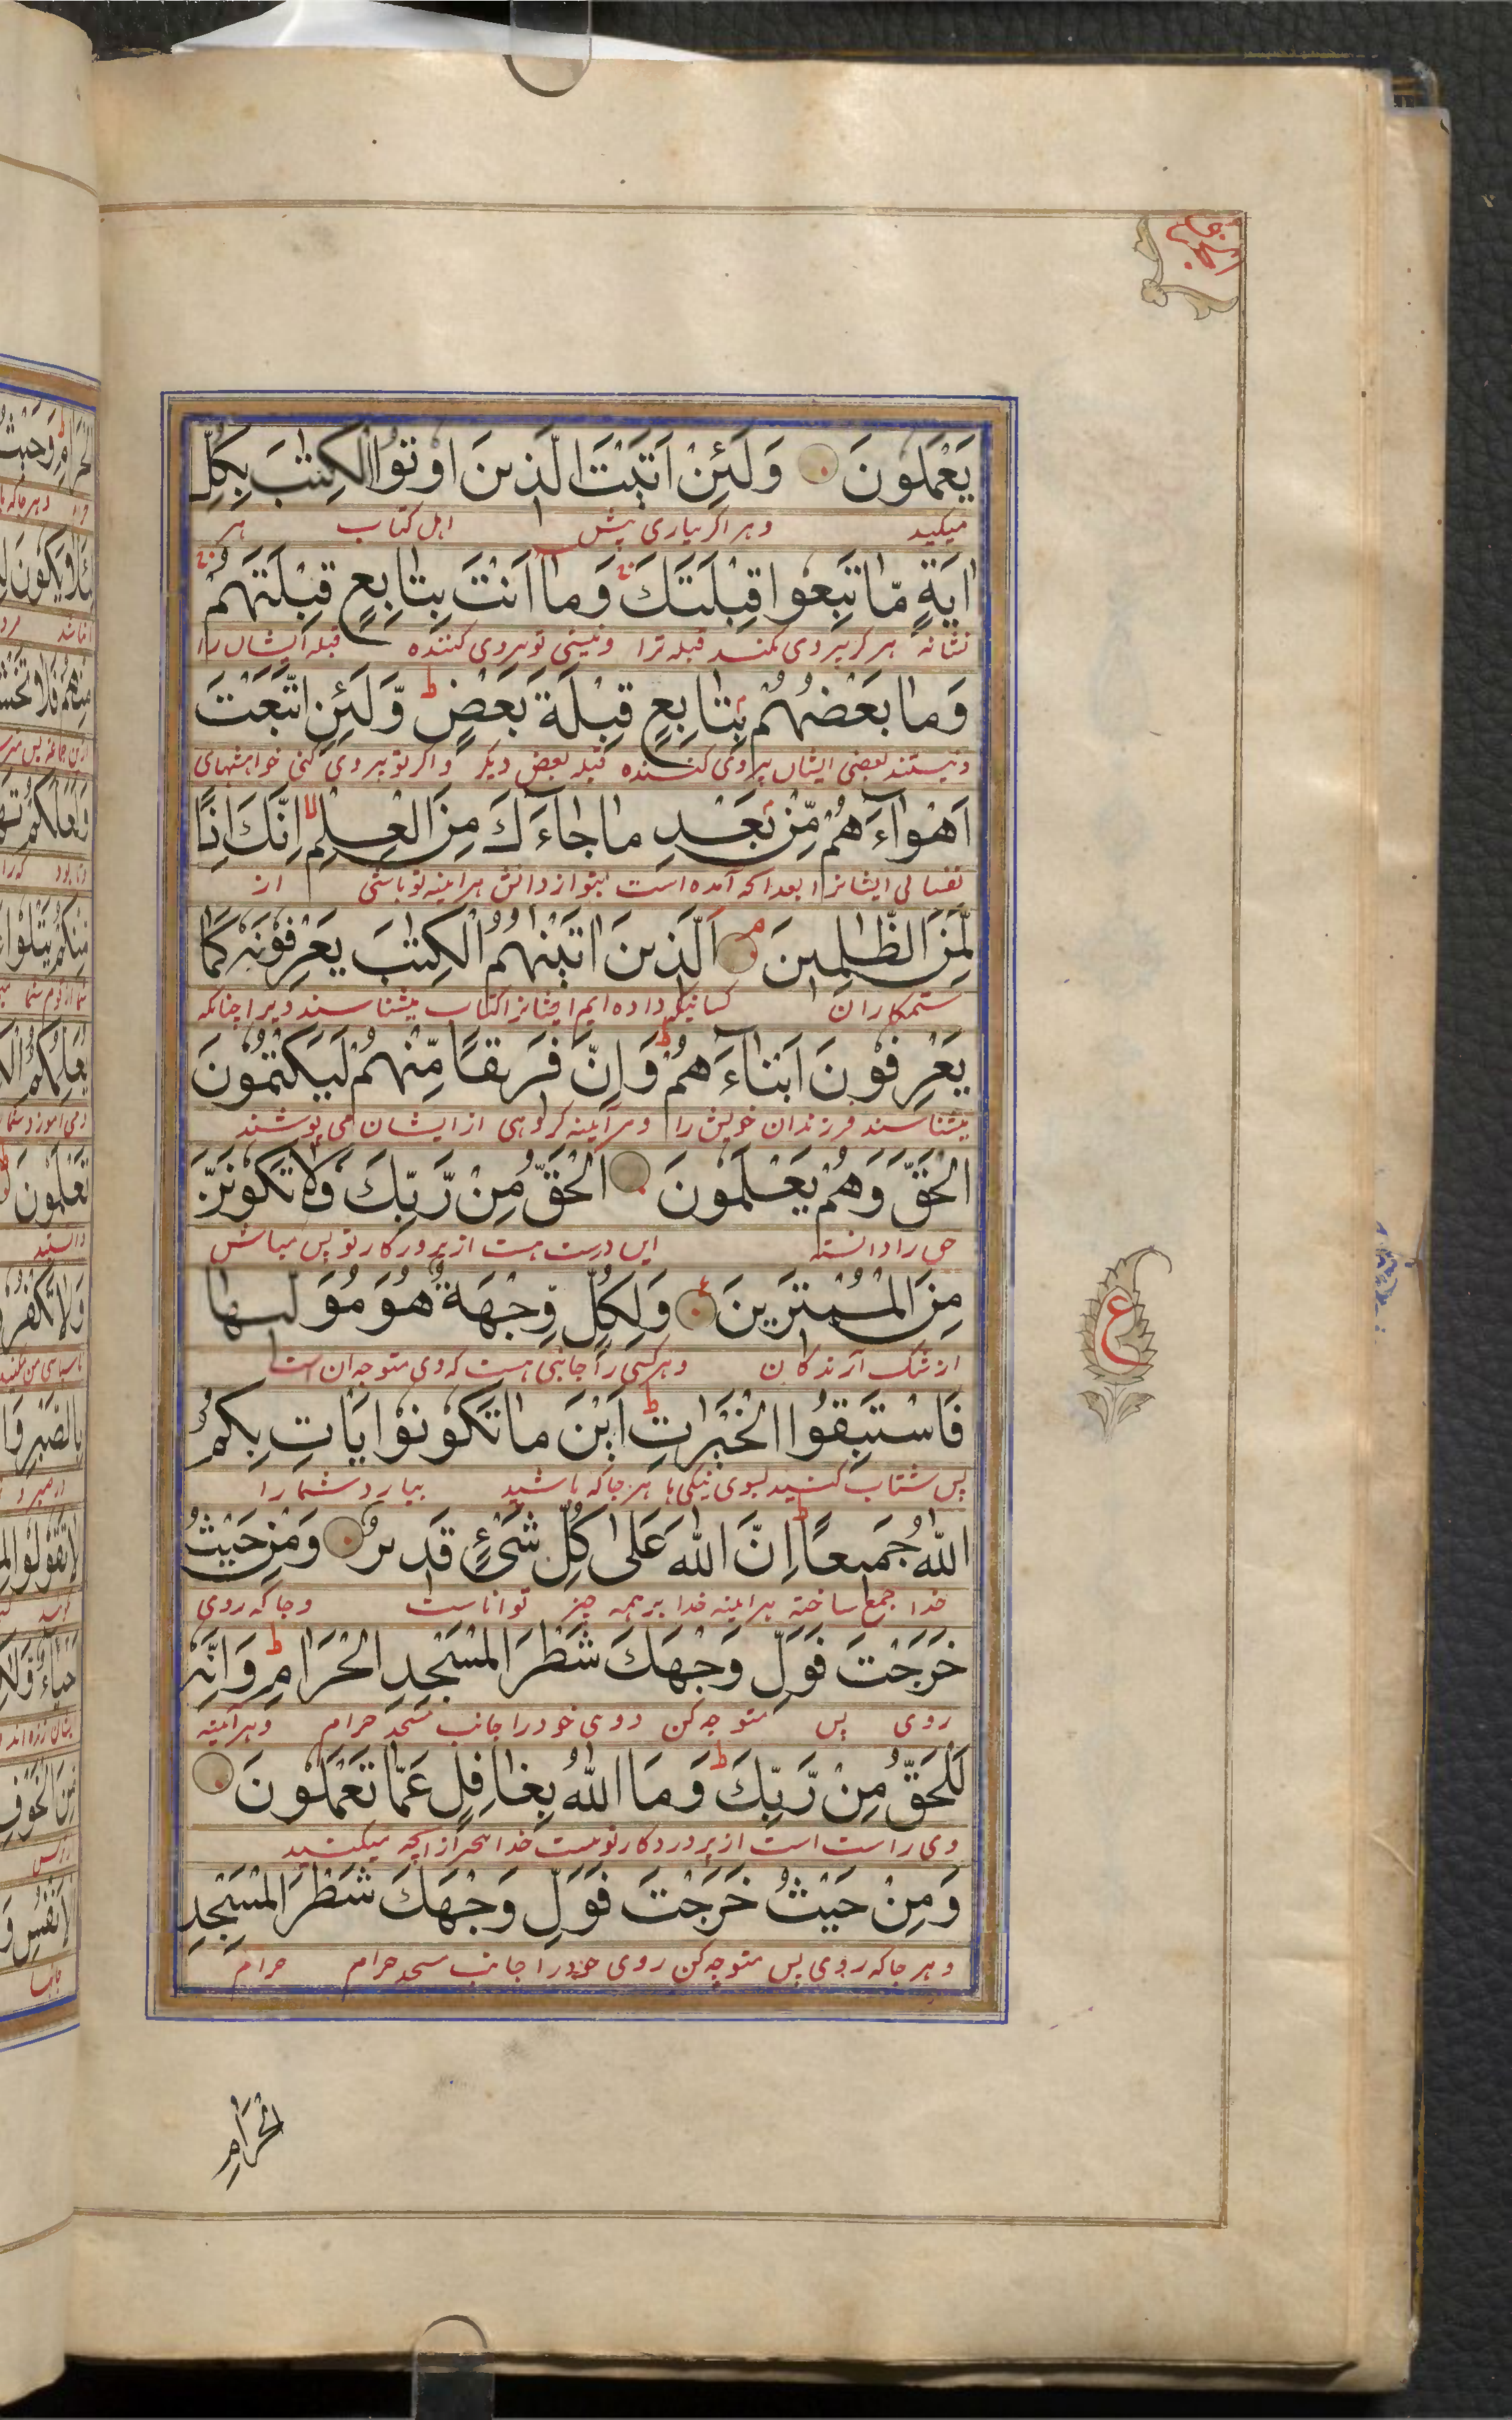 يَعْمَلُونَ وَلَئِنْ اَتَيْتَ الَّذِينَ اُوتُوا الْكِتٰبَ بِكُلِّ
میکنید وهر اکر بیاری پیش اهل کتاب هر
اٰيَةٍ مَّا تَبِعُوا قِبْلَتَكَ وَمَا اَنْتَ بِتَابِعٍ قِبْلَتَهُمْ
نشانه هرکز پیروی نکنند قبله ترا ونیستی تو پیروی کننده قبله ایشان را
وَمَا بَعْضُهُمْ بِتَابِعٍ قِبْلَةَ بَعْضٍ وَّلَئِنِ اتَّبَعْتَ
ونیستند بعضی ایشان پیروی کننده قبله بعض دیکر واکر تو پیروی کنی خواهشهای
اَهْوَآءَهُمْ مِّنْ بَعْدِ مَا جَآءَكَ مِنَ الْعِلْمِ اِنَّكَ اِذًا
نفسانی ایشانرا بعد انکه آمده است بتو از دانش هراینه تو باشی از
لَّمِنَ الظّٰلِمِينَ اَلَّذِينَ اٰتَيْنٰهُمُ الْكِتٰبَ يَعْرِفُونَهٗ كَمَا
ستمکاران کسانیکه داده ایم ایشانرا کتاب میشناسند ویرا چنانکه
يَعْرِفُونَ اَبْنَآءَهُمْ وَاِنَّ فَرِيقًا مِّنْهُمْ لَيَكْتُمُونَ
میشناسند فرزندان خویش را وهر آینه کروهی از ایشان می پوشند
الْحَقَّ وَهُمْ يَعْلَمُونَ اَلْحَقُّ مِنْ رَّبِّكَ فَلَا تَكُونَنَّ
حق را دانسته این درست هست از پرورکار تو پس مباش
مِنَ الْمُمْتَرِينَ وَلِكُلٍّ وِّجْهَةٌ هُوَ مُوَلِّيهَا
از شک آرندکان وهرکسی را جانبی هست که وی متوجه ان است
فَاسْتَبِقُوا الْخَيْرٰتِ اَيْنَ مَا تَكُونُوا يَاْتِ بِكُمُ
پس شتاب کنید بسوی نیکی ها هرجاکه باشید بیارد شما را
اللّٰهُ جَمِيعًا اِنَّ اللّٰهَ عَلٰى كُلِّ شَيْءٍ قَدِيرٌ وَمِنْ حَيْثُ
خدا جمع ساخته هراینه خدا بر همه چیز تواناست وجاکه روی
خَرَجْتَ فَوَلِّ وَجْهَكَ شَطْرَ الْمَسْجِدِ الْحَرَامِ وَاِنَّهٗ
روی پس متوجه کن روی خود را جانب مسجد حرام وهر آینه
لَلْحَقُّ مِنْ رَّبِّكَ وَمَا اللّٰهُ بِغَافِلٍ عَمَّا تَعْمَلُونَ
وی راست است از پروردکار تو نیست خدا بیخبر از انچه میکنید
وَمِنْ حَيْثُ خَرَجْتَ فَوَلِّ وَجْهَكَ شَطْرَ الْمَسْجِدِ
وهر جاکه روی پس متوجه کن روی خود را جانب مسجد حرام حرام
ع
الْحَرَامِ